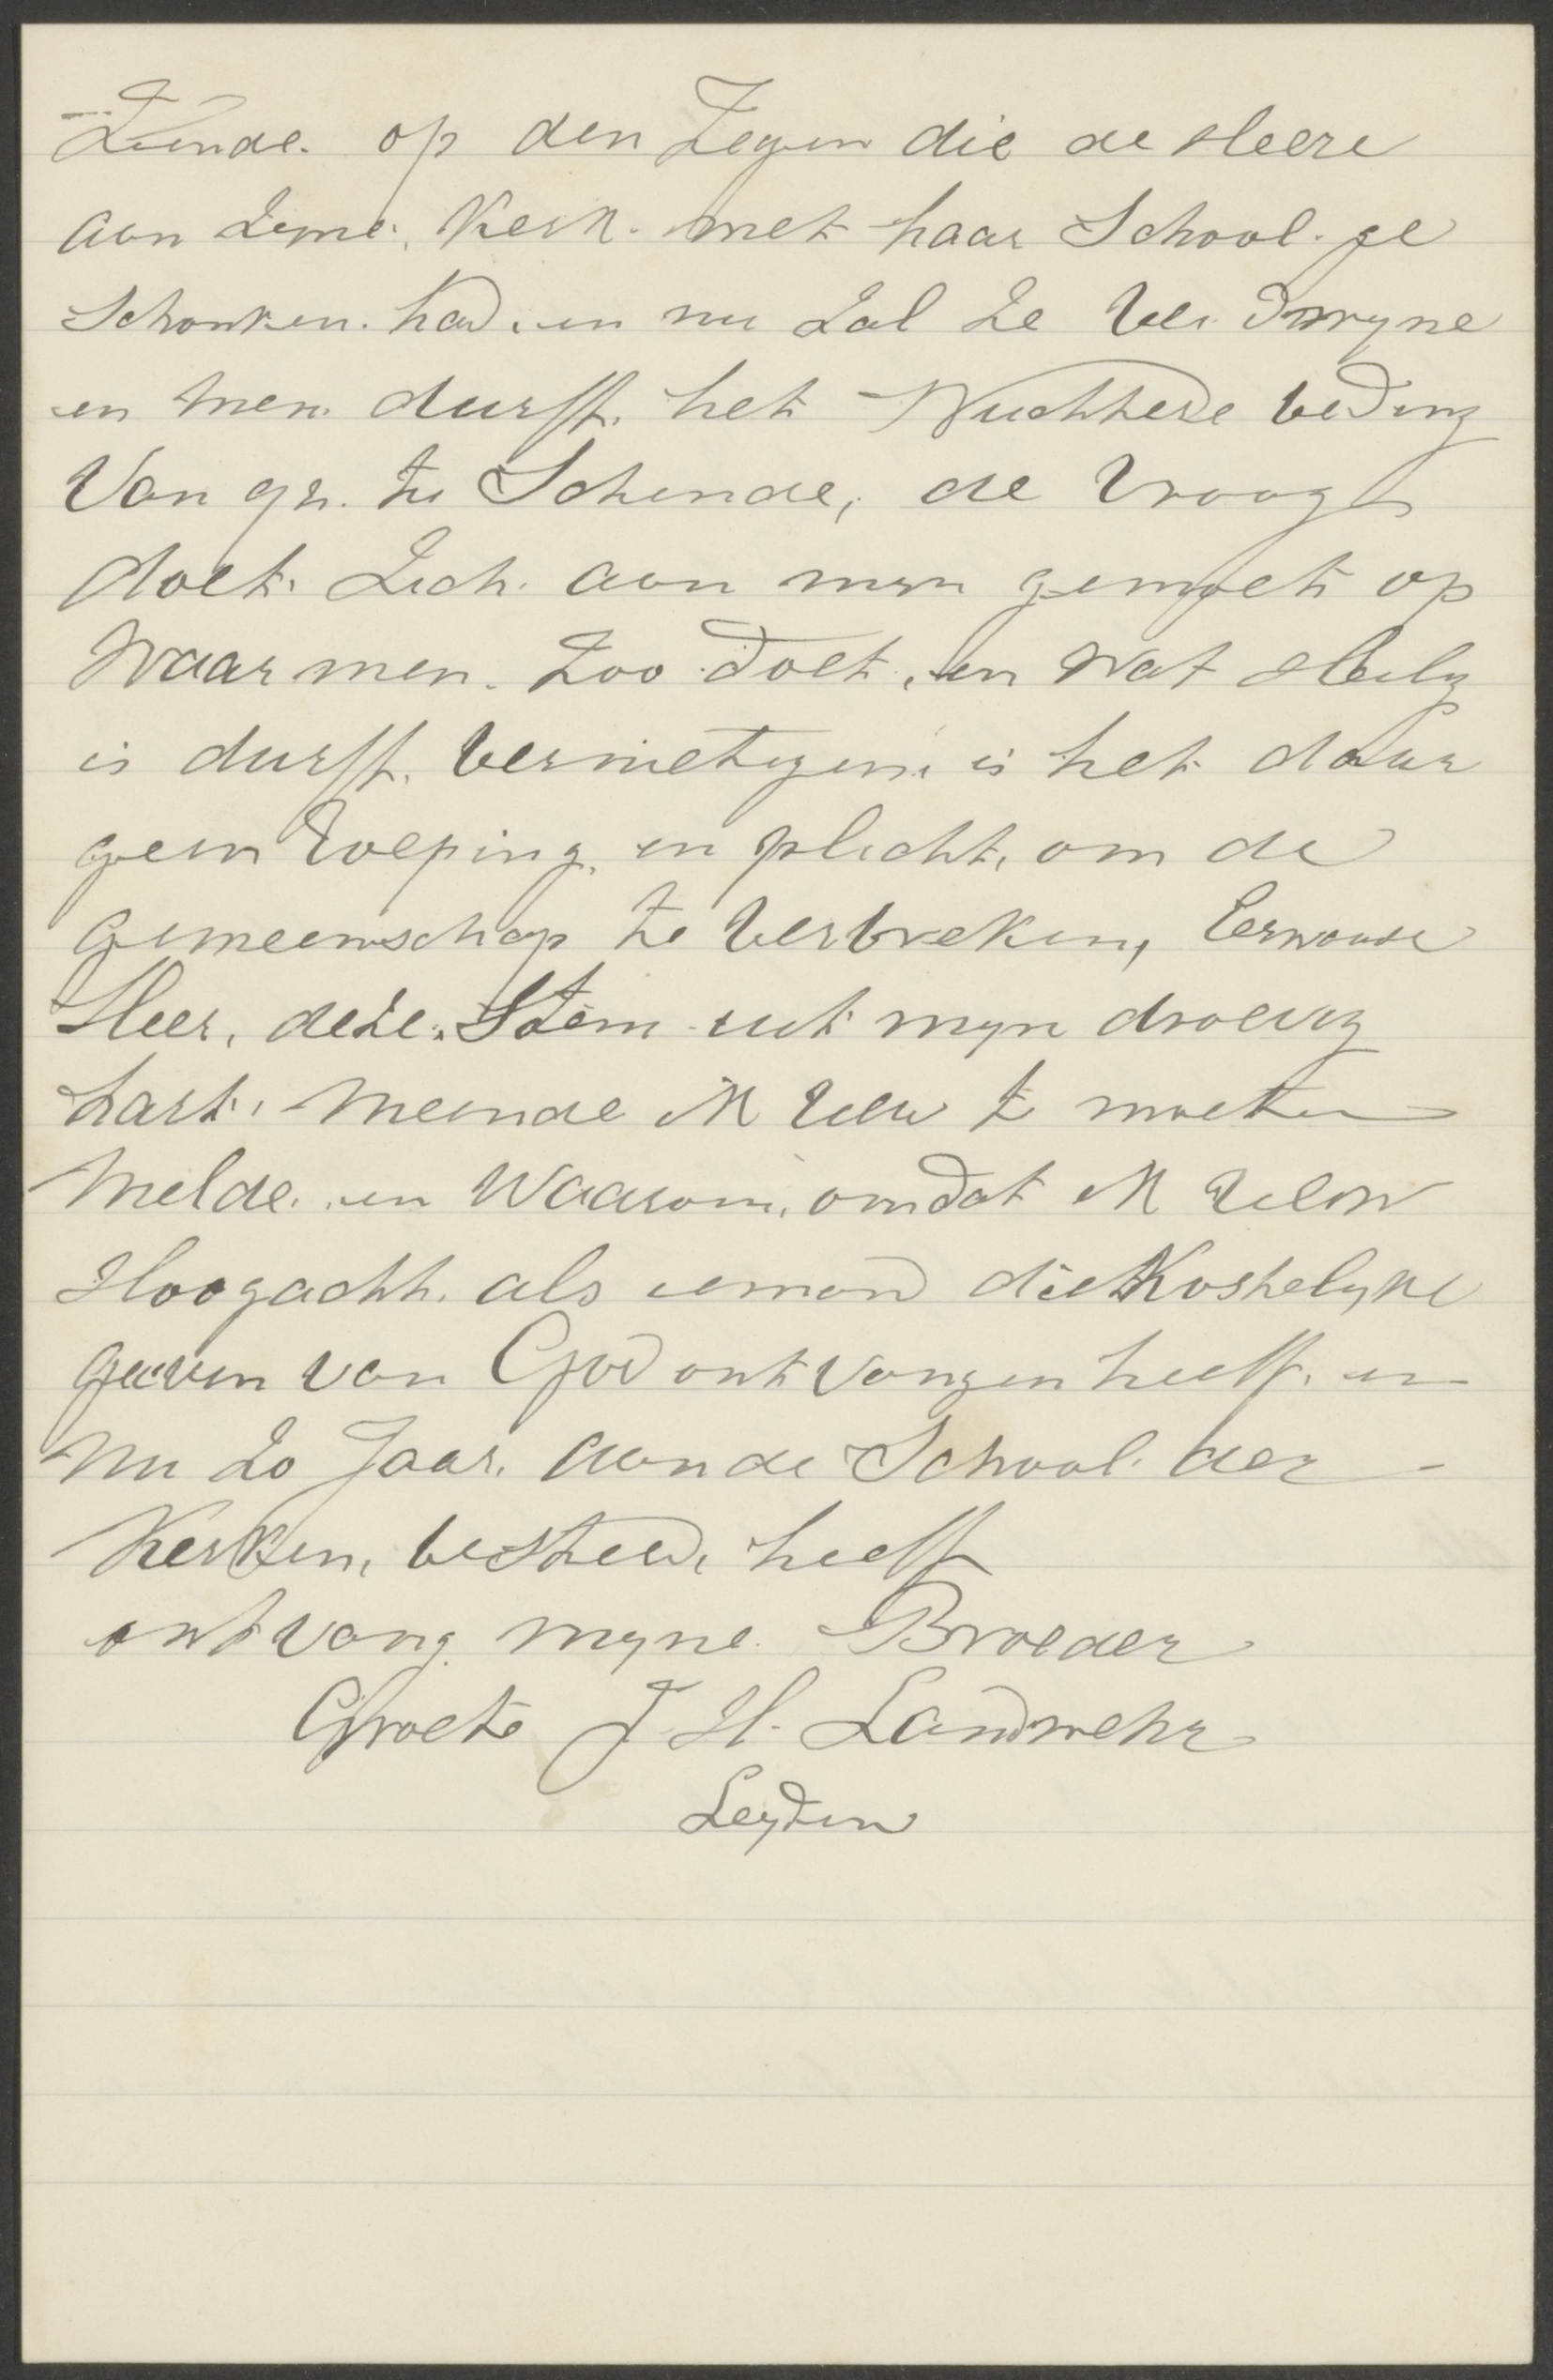 Ziende. op den Zegen die de Heere
aan Zyne. Kerk. met haar School. ge
Schonken. had. en nu Zal Ze Ver dwyne
en men. durft. het Nuchtere beding
Van gr. te Schende, de Vraag
doet. Zich. aan myn gemoet op
Waar men. Zoo doet. en wat Heilig
is durft. Vernietigen. is het daar
geen Roeping. en plicht. om de
gemeenschap te Verbreken, Eerwaarde
Heer, deze. Stem uit myn droevig
hart. Meende ik Uew te moeten
Melde. en Waarom. omdat ik Uew
Hoogacht. als iemand die Kostelyke
gaven van God ontvangen heeft. en
nu 20 Jaar. aan de School. der
Kerken, besteed, heeft
ontvang myne Broeder
Groete J. H. Landwehr
Leyden